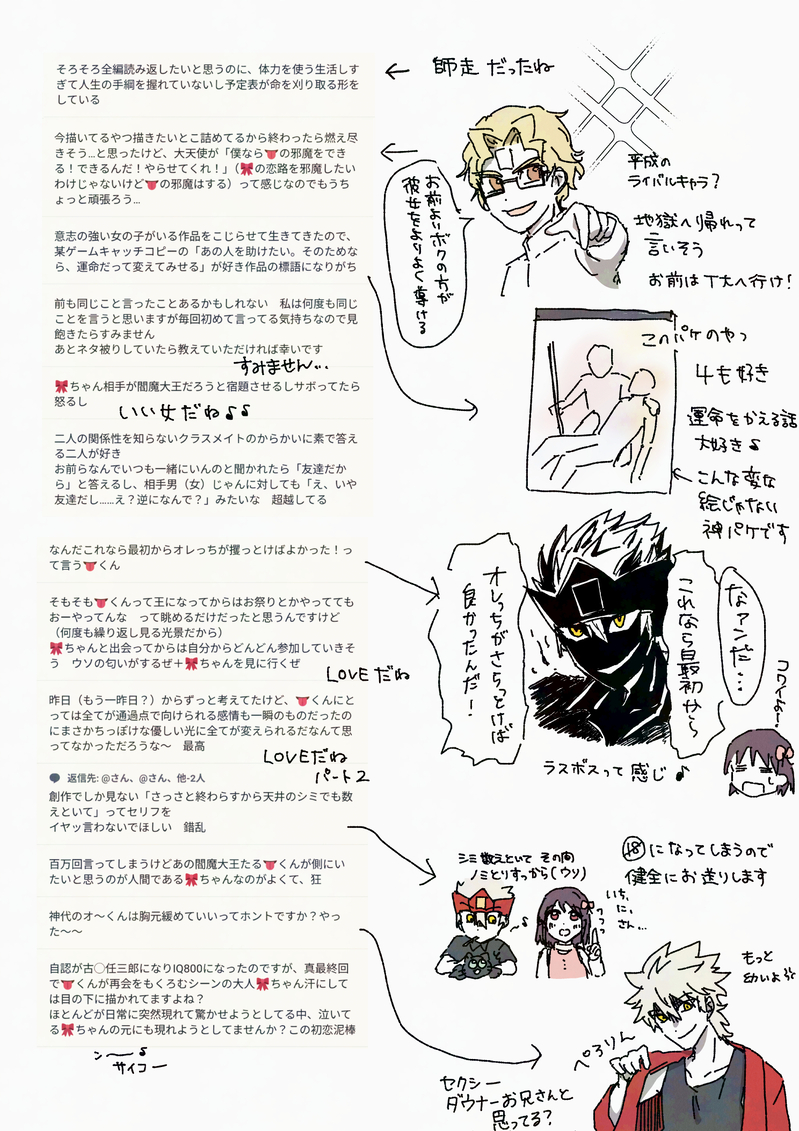 そろそろ全編読み返したいと思うのに、体力を使う生活しす
ぎて人生の手綱を握れていないし予定表が命を刈り取る形を
している
師走 だったね
今描いてるやつ描きたいとこ詰めてるから終わったら燃え尽
きそう…と思ったけど、大天使が「僕なら👅の邪魔をでき
る！できるんだ！やらせてくれ！」（🎀の恋路を邪魔したい
わけじゃないけど👅の邪魔はする）って感じなのでもうち
ょっと頑張ろう…
お前よりボクの方が
彼女をよりよく導ける
平成の
ライバルキャラ？
地獄へ帰れって
言いそう
お前は丁大へ行け！
意志の強い女の子がいる作品をこじらせて生きてきたので、
某ゲームキャッチコピーの「あの人を助けたい。そのためな
ら、運命だって変えてみせる」が好き作品の標語になりがち
このパケのやつ
4も好き
運命をかえる話
大好き♪
こんな変な
絵じゃない
神パケです
前も同じこと言ったことあるかもしれない　私は何度も同じ
ことを言うと思いますが毎回初めて言ってる気持ちなので見
飽きたらすみません
あとネタ被りしていたら教えていただければ幸いです
すみません…
🎀ちゃん相手が閻魔大王だろうと宿題させるしサボってたら
怒るし
いい女だね♪♪
二人の関係性を知らないクラスメイトのからかいに素で答え
る二人が好き
お前らなんでいつも一緒にいんのと聞かれたら「友達だか
ら」と答えるし、相手男（女）じゃんに対しても「え、いや
友達だし……え？逆になんで？」みたいな　超越してる
なんだこれなら最初からオレっちが攫っとけばよかった！っ
て言う👅くん
なァンだ…
これなら最初から
オレっちがさらっとけば
良かったんだ！
コワイよ〜
ラスボスって感じ♪
そもそも👅くんって王になってからはお祭りとかやってても
おーやってんな　って眺めるだけだったと思うんですけど
（何度も繰り返し見る光景だから）
🎀ちゃんと出会ってからは自分からどんどん参加していきそ
う　ウソの匂いがするぜ＋🎀ちゃんを見に行くぜ
LOVEだね
昨日（もう一昨日？）からずっと考えてたけど、👅くんにと
っては全てが通過点で向けられる感情も一瞬のものだったの
にまさかちっぽけな優しい光に全てが変えられるだなんて思
ってなかっただろうな〜　最高
LOVEだね
パート2
返信先: @さん、@さん、他-2人
創作でしか見ない「さっさと終わらすから天井のシミでも数
えといて」ってセリフを
イヤッ言わないでほしい　錯乱
シミ数えといて その間
ノミとりすっから（ウソ）
いち、
に、
さん…
⑱になってしまうので
健全にお送りします
百万回言ってしまうけどあの閻魔大王たる👅くんが側にい
たいと思うのが人間である🎀ちゃんなのがよくて、狂
神代のオ〜くんは胸元緩めていいってホントですか？やっ
た〜〜
もっと
幼いよ
ぺろりん
セクシー
ダウナーお兄さんと
思ってる？
自認が古◯任三郎になりIQ800になったのですが、真最終回
で👅くんが再会をもくろむシーンの大人🎀ちゃん汗にして
は目の下に描かれてますよね？
ほとんどが日常に突然現れて驚かせようとしてる中、泣いて
る🎀ちゃんの元にも現れようとしてませんか？この初恋泥棒
ン〜♪
サイコー